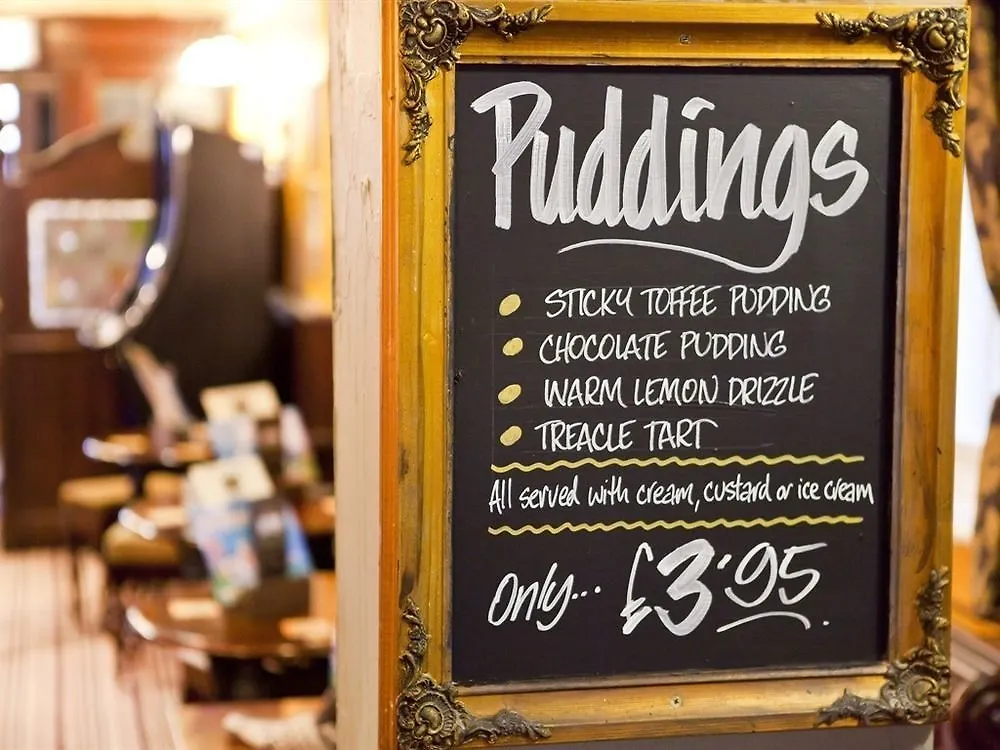 Puddings
STICKY TOFFEE PUDDING
CHOCOLATE PUDDING
WARM LEMON DRIZZLE
TREACLE TART
All served with cream, custard or ice cream
Only... £3.95